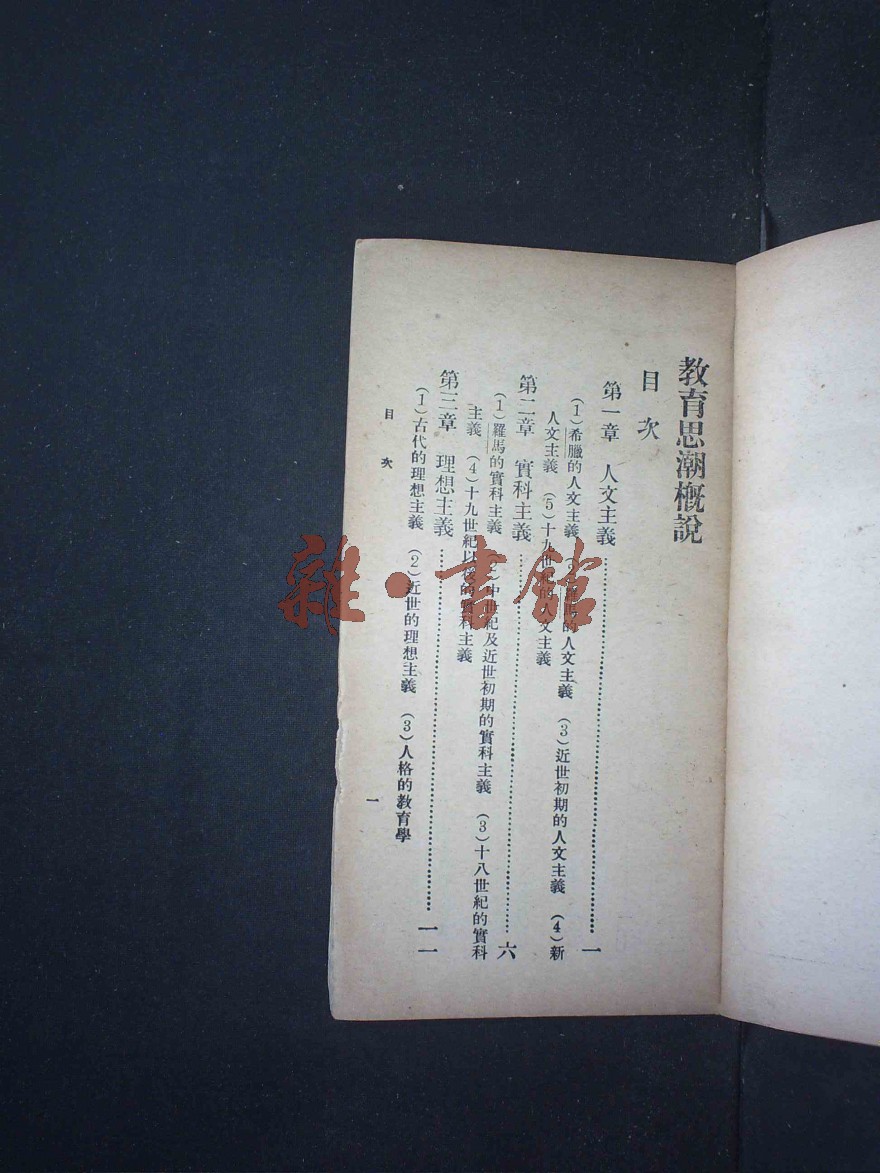 教育思潮槪說
目次
第一章 人文主義………一
(1)希臘的人文主義 的人文主義 (3)近世初期的人文主義 (4)新
人文主義 (5)十九世紀的人文主義
第二章 實科主義………六
(1)羅馬的實科主義 中世紀及近世初期的實科主義 (3)十八世紀的實科
主義 (4)十九世紀以後的實科主義
第三章 理想主義………一一
(1)古代的理想主義 (2)近世的理想主義 (3)人格的教育學
目次
一
雜·書館